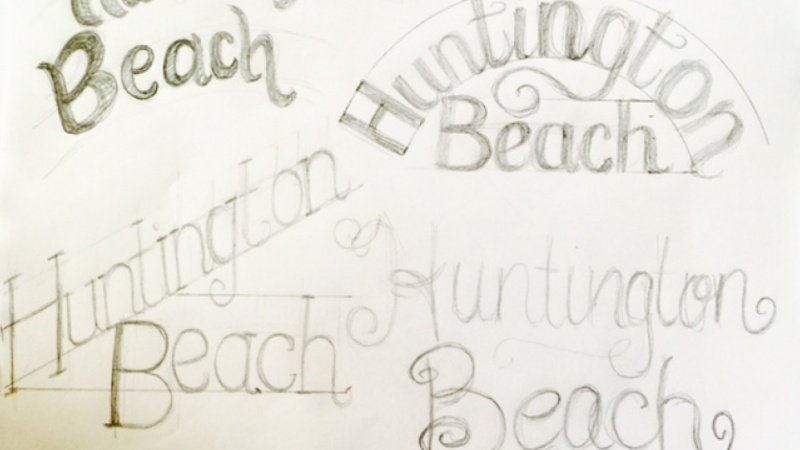 Beach
Huntington
Beach
Huntington
Beach
Huntington
Beach